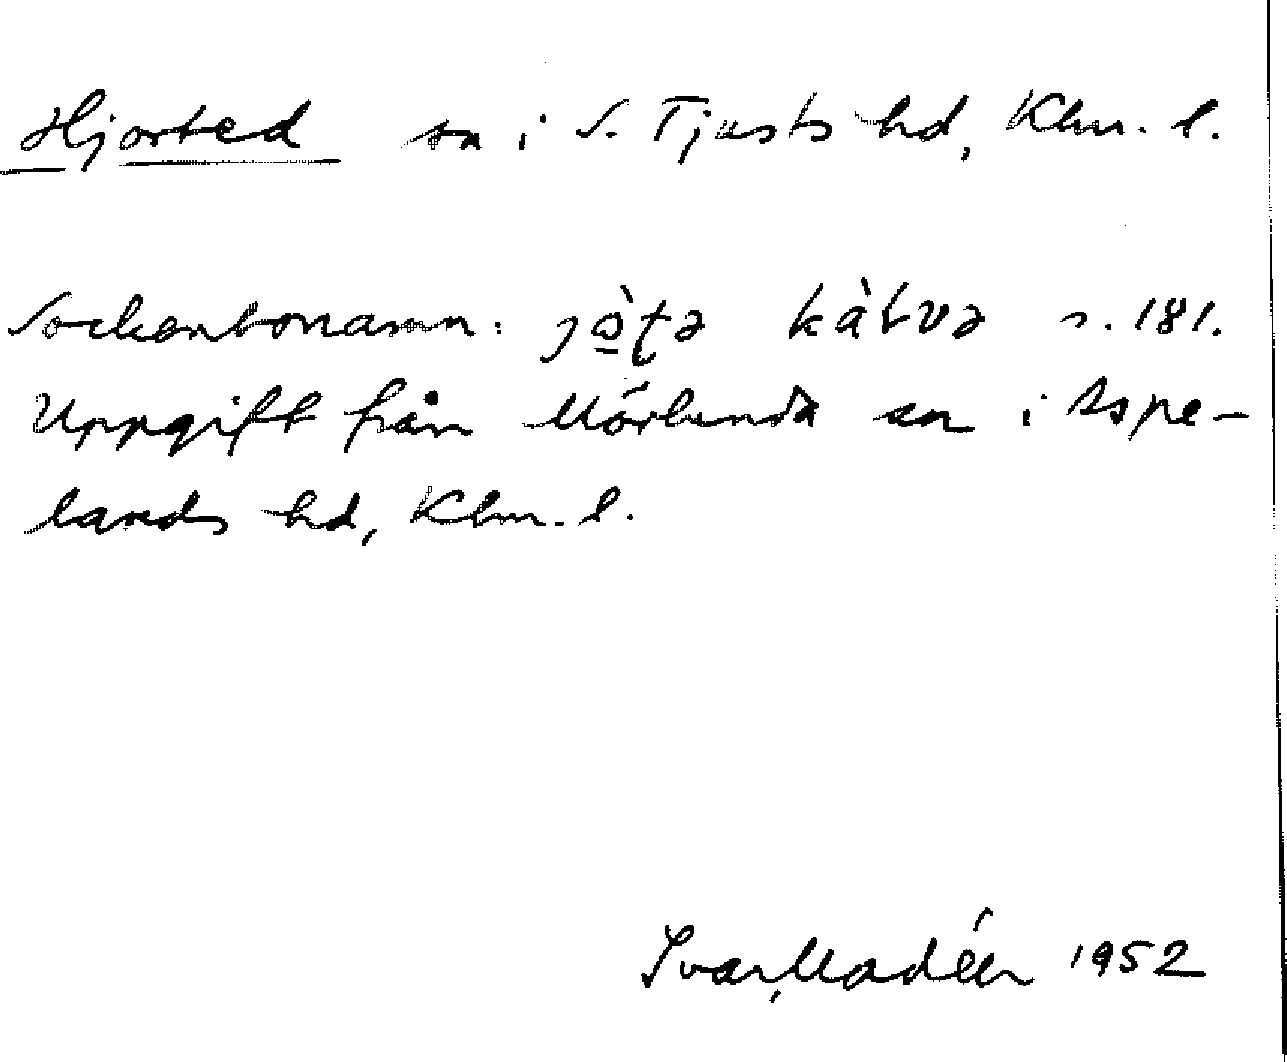 Hjorted sn i S. Tjusts hd, Klm. l.
Sockenbonamn: jò̱ʈə kàɫvə s. 181.
Uppgift från Mörlunda sn i Aspe-
lands hd, Klm. l.
Ivar Modéer 1952